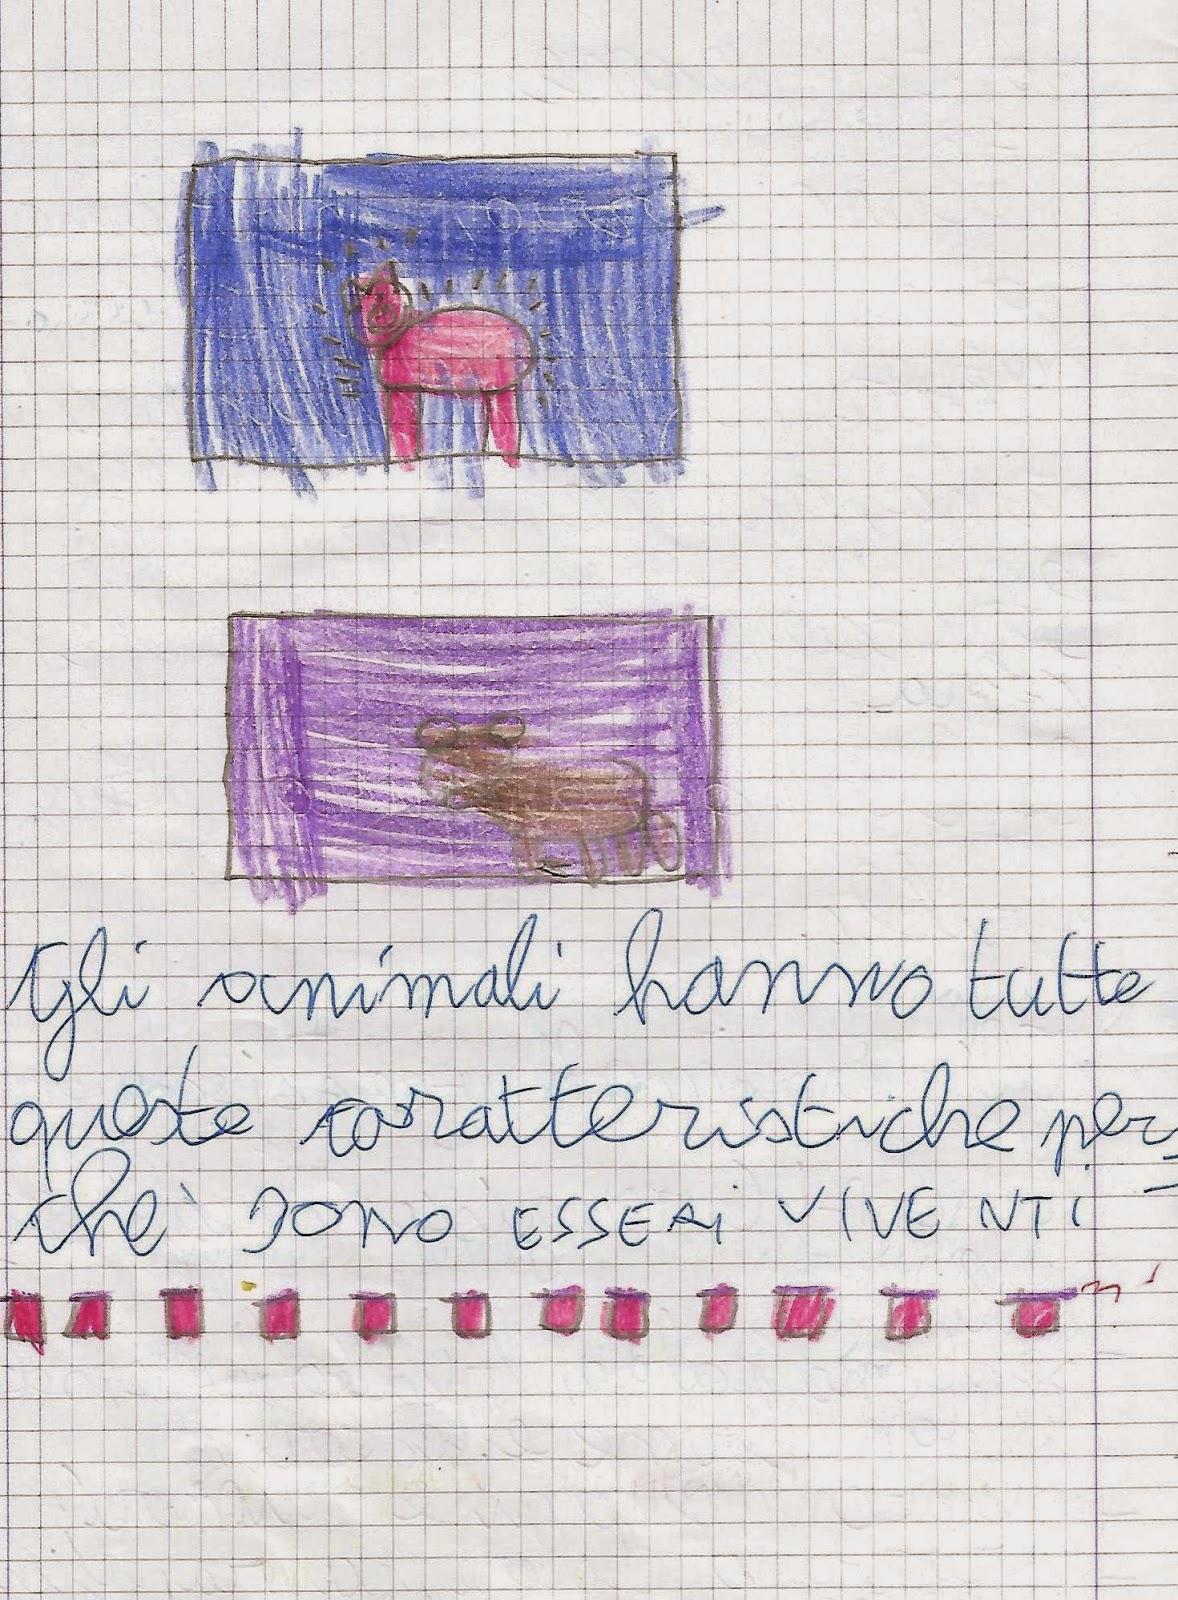 Gli animali hanno tutte
queste caratteristiche per=
chè sono ESSERI VIVENTI